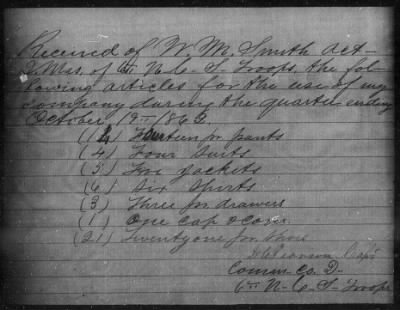 Received of W. M. Smith Act-
Q. Mas. of 6th N. C. S. Troops, the fol-
lowing articles for the use of my
company during the quarter ending
October 19th 1863.
(14) Fourteen pr pants
(4) Four Suits
(5) Five jackets
(6) Six Shirts
(3) Three pr drawers
(1) One cap & cover
(21) Twenty one pr Shoes
Capt
Comm Co. D-
6th N. C. S. Troops